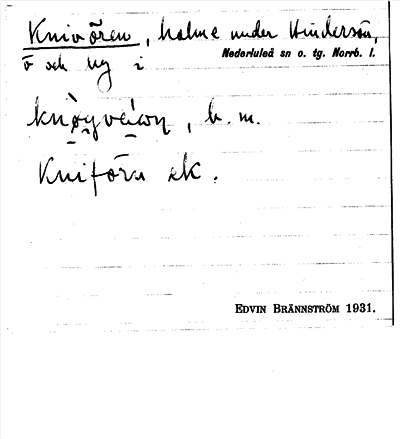 Knivören, holme under Hindersön,
ö och by i Nederluleå sn o. tg. Norrb. l.
, b. m.
Kniföra ek.
EDVIN BRÄNNSTRÖM 1931.